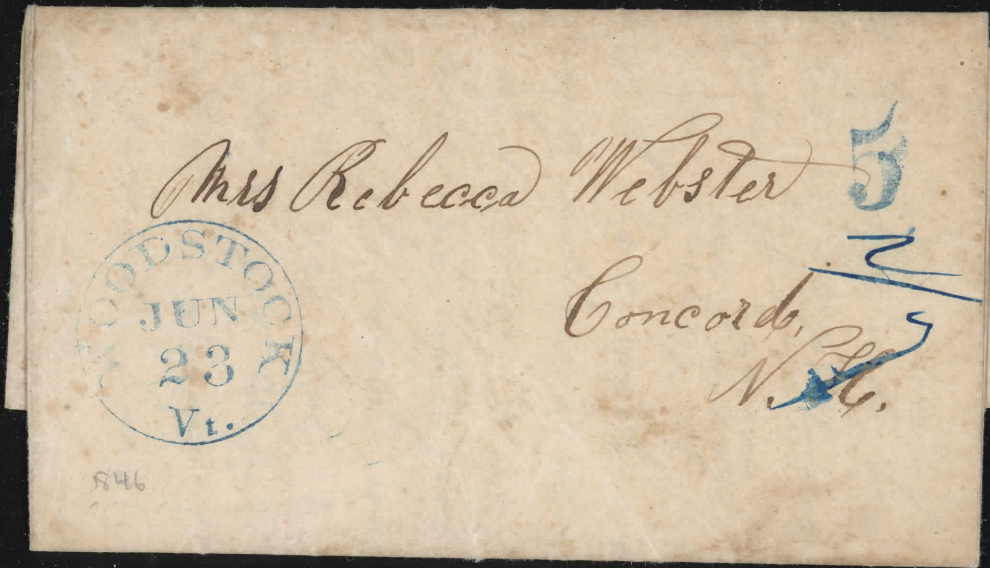 5
Mrs Rebecca Webster
Concord,
N.H.
WOODSTOCK
JUN
23
Vt.
1846